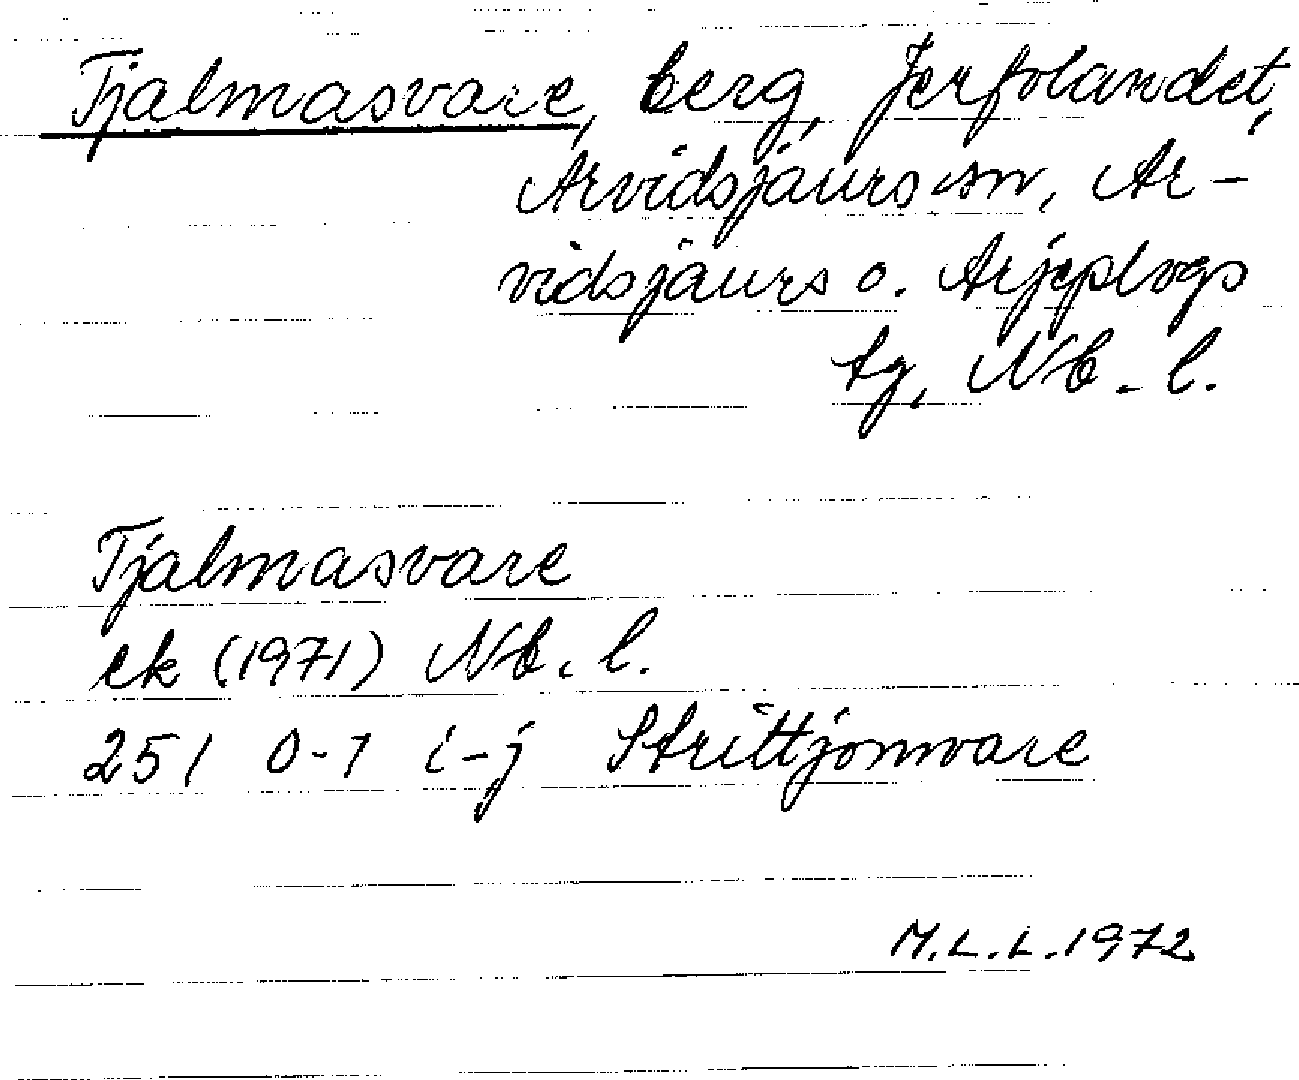 Tjalmasvare, berg, Jerfolandet,
Arvidsjaurs sn, Ar-
vidsjaurs o. Arjeplogs
tg, Nb. l.
Tjalmasvare
ek (1971) Nb. l.
251 0-1 i-j Strittjomvare
M.L.L. 1972